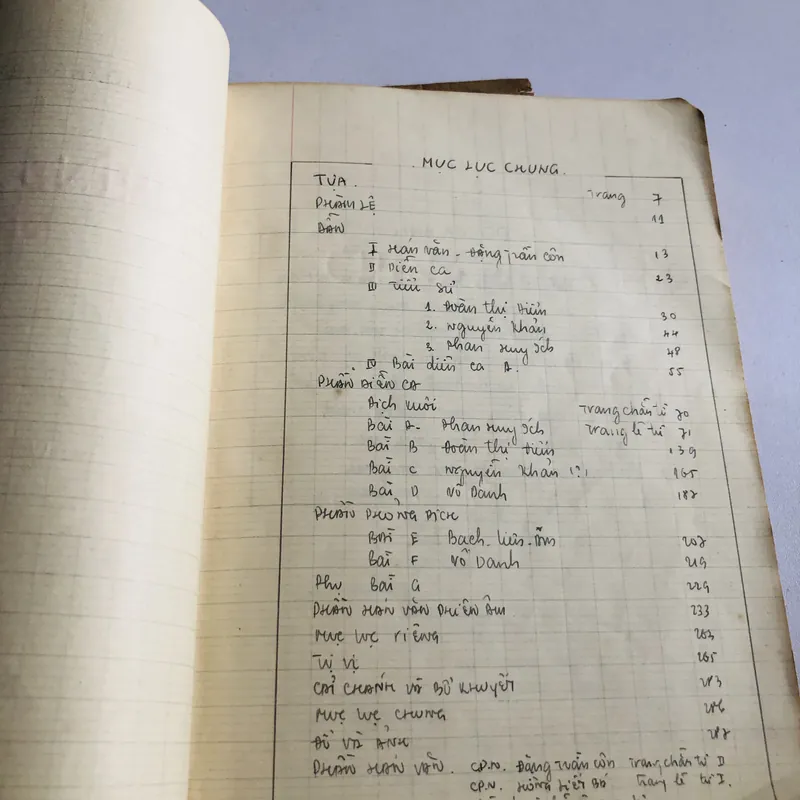 MỤC LỤC CHUNG.
TỰA. Trang 7
PHÀM LỆ 11
DẪN
I Hán văn - Đặng Trần Côn 13
II Diễn ca 23
III Tiểu sử
1. Đoàn thị Điểm 30
2. Nguyễn Khản 44
3. Phan Huy Ích 48
IV Bài diễn ca A. 55
PHẦN DIỄN CA
Dịch xuôi Trang chẵn từ 70
Bài A - Phan Huy Ích Trang lẻ từ 71
Bài B Đoàn thị Điểm 139
Bài C Nguyễn Khản (?) 165
Bài D Vô Danh 187
PHẦN PHỎNG DỊCH
Bài E Bạch-liên-Am 207
Bài F Vô Danh 219
Phụ Bài G 229
PHẦN HÁN VĂN PHIÊN ÂM 233
MỤC LỤC RIÊNG 263
TỰ VỊ 265
CẢI CHÁNH VÀ BỔ KHUYẾT 283
MỤC LỤC CHUNG 286
ĐỒ VÀ ẢNH 287
PHẦN HÁN VĂN. CP.N. Đặng Trần Côn Trang chẵn từ II
CP.N. HỒNG LIỆT BÁ Trang lẻ từ I.